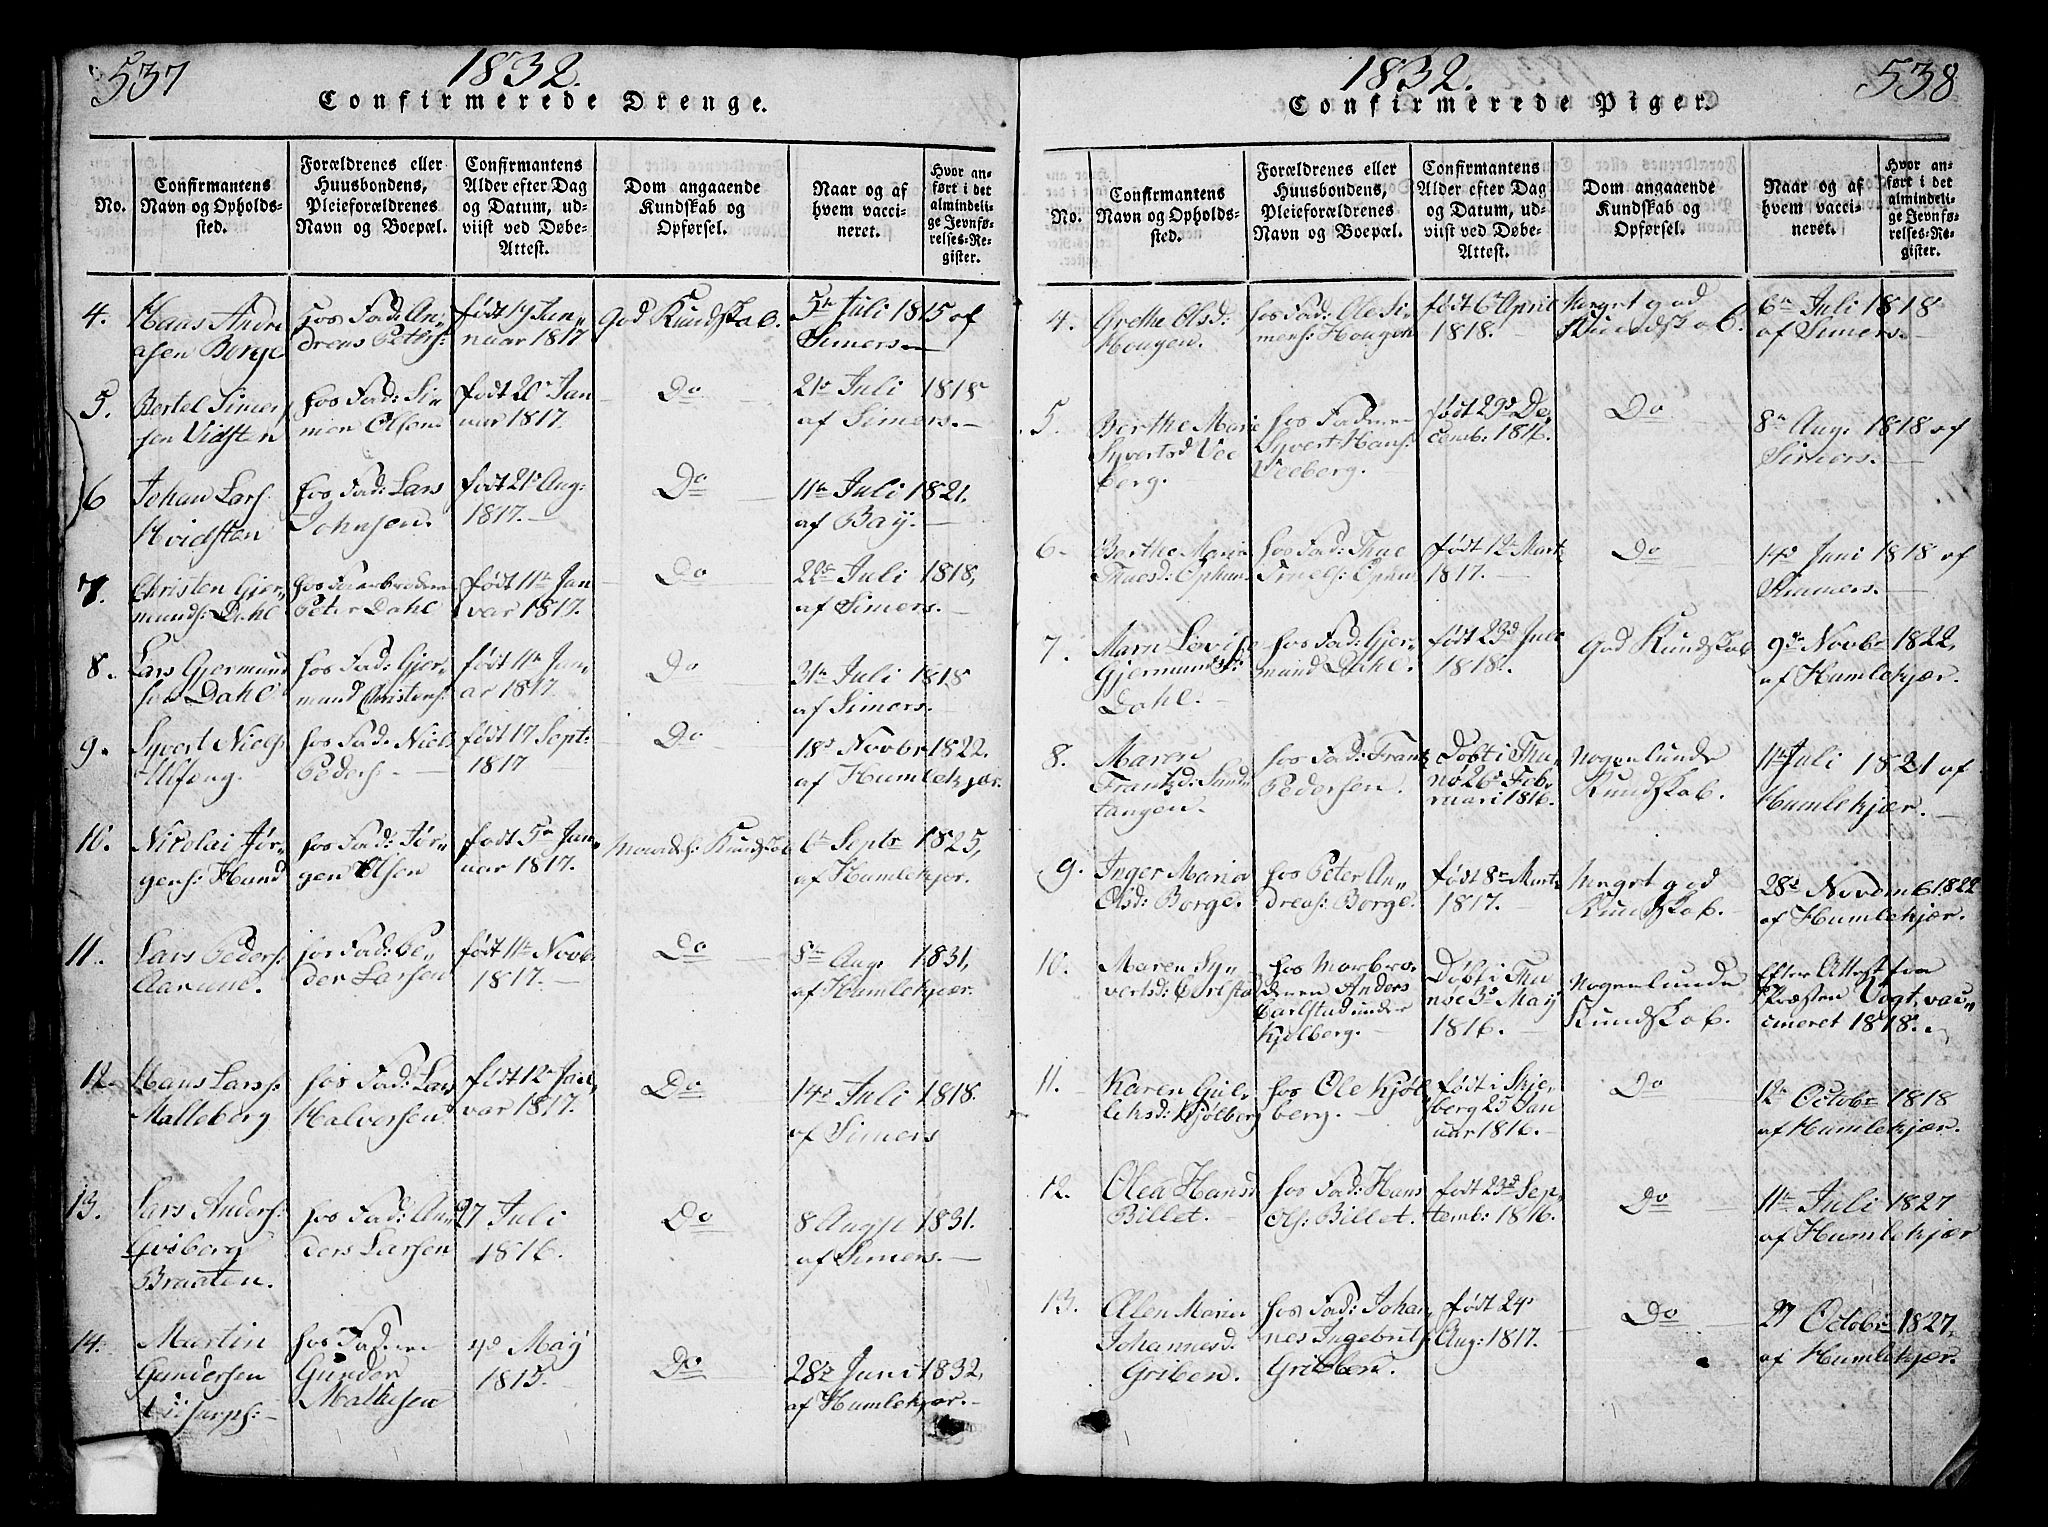 537
1832.
Confirmerede Drenge.
No.
Confirmantens
Navn og Opholds-
sted.
Forældrenes eller
Huusbondens,
Pleieforældrenes
Navn og Boepæl.
Confirmantens
Alder efter Dag
og Datum, ud-
viist ved Døbe-
Attest.
Dom angaaende
Kundskab og
Opførsel.
Naar og af
hvem vacci-
neret.
Hvor an-
ført i det
almindeli-
ge Jevnfø-
relses-Re-
gister.
4.
Hans Andre
asen Borge
hos Fad: An,,
dreas Peters:
født 19 Jan,,
nuar 1817
God Kundskab.
5te Juli 1815 af
Simers.
5.
Bertel Simen,
sen Vidsten
hos Fad: Si,,
mon Olsen
født 20de Jan
uar 1817.
Do
21de Juli 1818
af Simers.
6
Johan Lars:
Hvidsten
hos Fad: Lars
Johnsen.
født 21de Aug:
1817.
Do
11te Juli 1821.
af Bay.
7.
Christen Gjer,,
munds: Dahl
hos Farbroderen
Peter Dahl
født 11te Jan
var 1817.
Do
22de Juli 1818,
af Simers.
8.
Lars Gjermund
sen Dahl
hos Fad: Gjer,,
mund Christens:
født 11te Jan,,
ar 1817.
Do
31te Juli 1818
af Simers.
9.
Syvert Niels:
Ulfeng.
hos Fad: Niels
Peders:
født 17 Sept:
1817
Do
18de Novbr 1822.
af Humlekjær.
10.
Nicolai Jør,,
gens: Hund
hos Fad: Jør,,
gen Olsen
født 5te Jan,,
uar 1817.
Kundskab
6te Septr 1825,
af Humlekjær.
11.
Lars Peders:
Aarum.
hos Fad: Pe,,
der Larsen
født 11te Novbr
1817.
Do
8de Aug. 1831,
af Humlekjær.
12.
Hans Lars:
Malleberg
hos Fad: Lars
Halversen
født 12te Jan,,
var 1817.
Do
14de Juli 1818.
af Simers
13.
Lars Anders:
Braaten.
hos Fad: An,,
ders Larsen
27 Juli
1816.
Do
8 Augst 1831.
af Simers.
14.
Martin
Gundersen
hos Faderen
Gunder
Mathisen
4de May
1815.
Do
28de Juni 1832,
af Humlekjær.
538
1832.
Confirmerede Piger.
No.
Confirmantens
Navn og Opholds-
sted.
Forældrenes eller
Huusbondens,
Pleieforældrenes
Navn og Boepæl.
Confirmantens
Alder efter Dag
og Datum, ud-
viist ved Døbe-
Attest.
Dom angaaende
Kundskab og
Opførsel.
Naar og af
hvem vacci-
neret.
Hvor an-
ført i det
almindeli-
ge Jevnfø-
relses-Re-
gister.
4.
Grethe Olsd:
Hougen.
hos Fad: Ole Si,,
mens: Hougen
født 6te April
1818.
Meget god
Kundskab.
6te Juli 1818
af Simers.
5.
Berthe Mari
Syvertsd Vee
berg.
hos Faderen
Syvert Hans:
Veeberg.
født 29de De,
cemb. 1816.
Do
8de Aug. 1818 af
Simers.
6.
Berthe Maria
Thuesd: Ophuus
hos Fad: Thue
Troels: Ophuus
født 12te Mart
1817.
Do
14de Juni 1818 af
Simmers.
7.
Marn Lovise
Gjermunds:
Dahl.
hos Fad: Gjer,,
mund Dahl.
født 23de Juli
1818.
God Kundskab
9de Novbr 1822,
af Humlekjær.
8.
Maren
Frantzd: Sund
tangen.
hos Fad: Frantz
Pedersen.
Døbt i Thu,
nø 26de Feb,
ruari 1816.
Nogenlunde
Kundskab.
11te Juli 1821 af
Humlekjær.
9.
Inger Maria
Olsd: Borge.
hos Peter An,,
dreas: Borge.
født 8de Mart:
1817.
Meget god
Kundskab.
28de Novemb 1822
af Humlekjær.
10.
Maren Sy,,
vertsd: Carlstad
hos Morbro,
deren Anders
Carlstad under
Kjølberg.
Døbt i Thu,
nøe 3de May
1816.
Nogenlunde
Kundskab.
Efter Attest fra
Præsten Vogt, vac,,
cineret 1818.
11.
Karen Gul,
leksd: Kjølberg
hos Ole Kjøl
berg.
født i Skje,
berg 25 Jan
uar 1816.
Do
12te Octobr 1818
af Humlekjær.
12.
Olea Hansd
Billet.
hos Fad: Hans
Ols: Billet.
født 23de Sep,
temb: 1816.
Do
11te Juli 1827
af Humlekjær
13.
Ellen Maria
Johannesd.
Griben.
hos Fad: Johan
nes Ingebrets:
Gribben.
født 24de
Aug: 1817.
Do
27 Octobr 1827.
af Humlekjær.